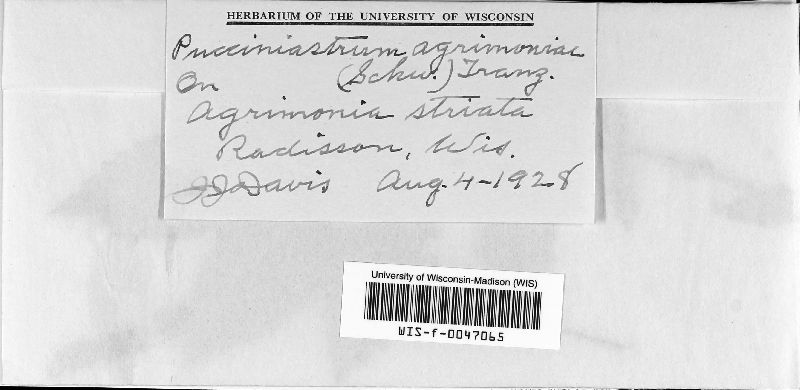 HERBARIUM OF THE UNIVERSITY OF WISCONSIN
Pucciniastrum agrimoniae
(Schw.) Tranz.
On
Agrimonia striata
Radisson, Wis.
JJDavis Aug. 4-1928
University of Wisconsin-Madison (WIS)
WIS-f-0047065